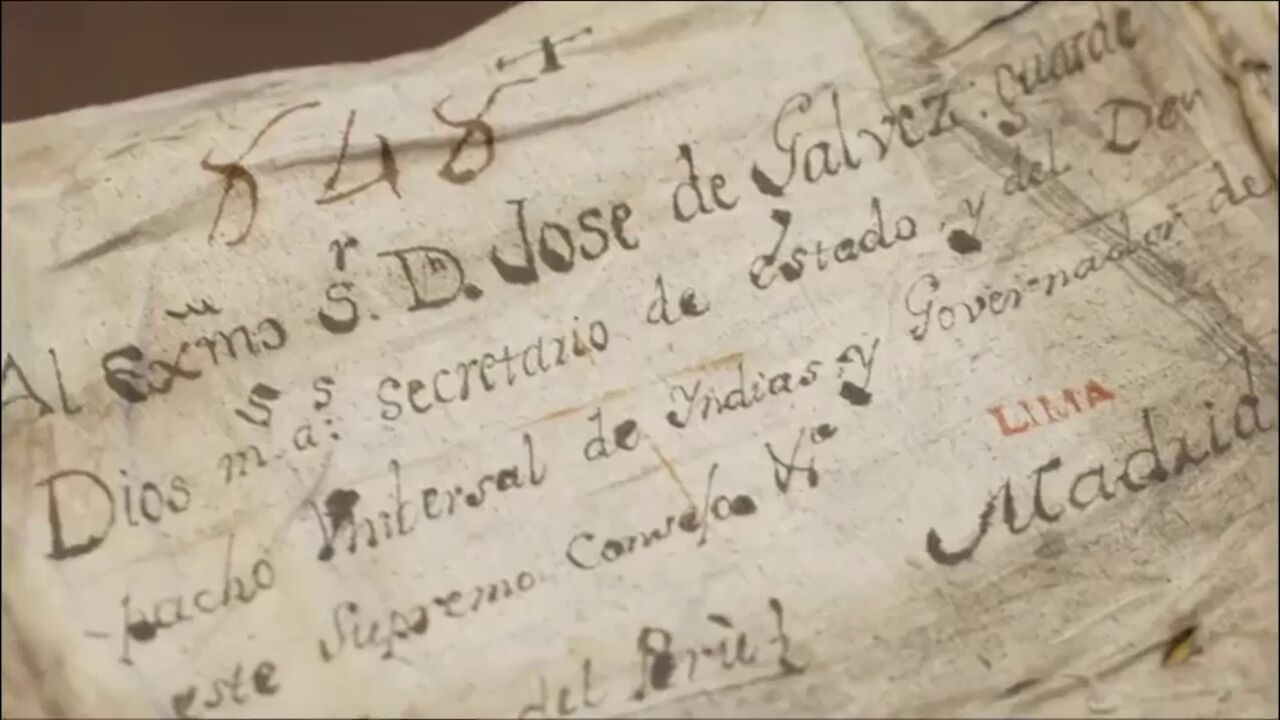 848
Al Exmo Sr. Dn. Jose de Galvez guarde
Dios ms. as. secretario de estado, y del Des
pacho Vniversal de Yndias, y Governador de
este Supremo Consejo
LIMA
Madrid
del Perù